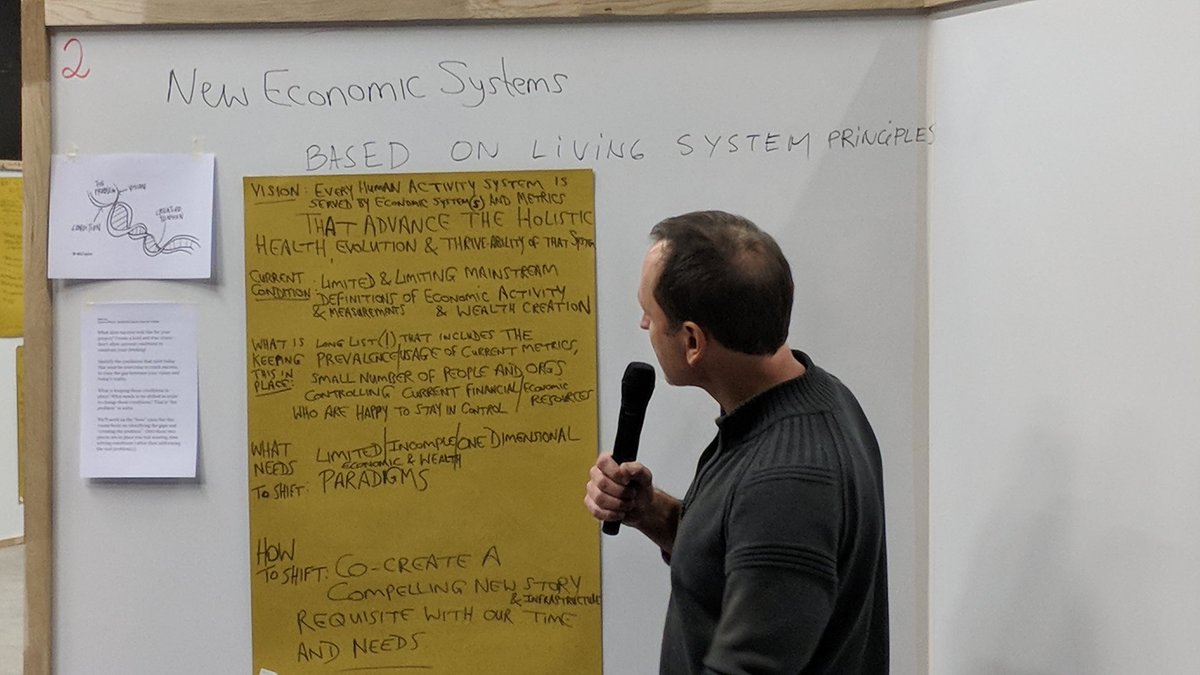 2
New Economic Systems
BASED ON LIVING SYSTEM PRINCIPLES
THE
PROBLEM
VISION
CREATIVE
TENSION
CONDITION
VISION: EVERY HUMAN ACTIVITY SYSTEM IS
SERVED BY ECONOMIC SYSTEM(S) AND METRICS
THAT ADVANCE THE HOLISTIC
HEALTH, EVOLUTION & THRIVE-ABILITY OF THAT SYSTEM
CURRENT CONDITION: LIMITED & LIMITING MAINSTREAM
DEFINITIONS OF ECONOMIC ACTIVITY
& MEASUREMENTS & WEALTH CREATION
WHAT IS LONG LIST(!) THAT INCLUDES THE
KEEPING PREVALENCE/USAGE OF CURRENT METRICS,
THIS IN
PLACE: SMALL NUMBER OF PEOPLE AND ORGS
CONTROLLING CURRENT FINANCIAL/ECONOMIC RESOURCES
WHO ARE HAPPY TO STAY IN CONTROL
WHAT LIMITED/INCOMPLE/ONE DIMENSIONAL
NEEDS ECONOMIC & WEALTH
TO SHIFT: PARADIGMS
HOW
TO SHIFT: CO-CREATE A
COMPELLING NEW STORY
& INFRASTRUCTURE
REQUISITE WITH OUR TIME
AND NEEDS